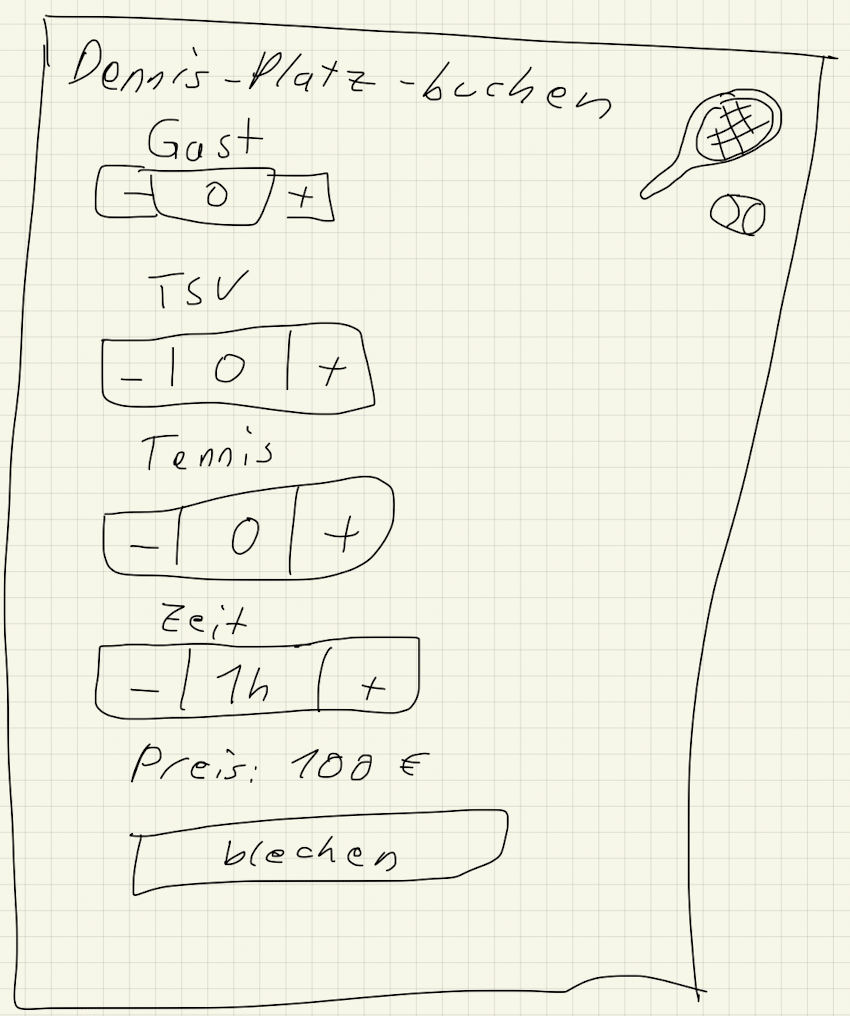 Dennis-Platz-buchen
Gast
- 0 +
TSV
- 0 +
Tennis
- 0 +
Zeit
- 1h +
Preis: 100 €
blechen